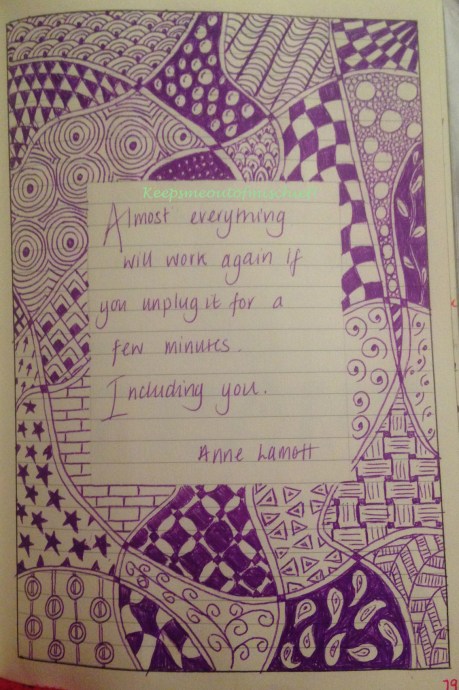 Keepmeoutofmischief
Almost everything
will work again if
you unplug it for a
few minutes.
Including you.
Anne Lamott
79